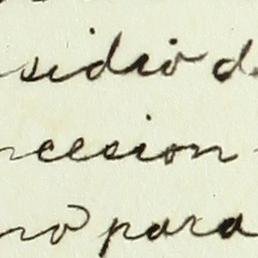 sidio d
ncesion
no para